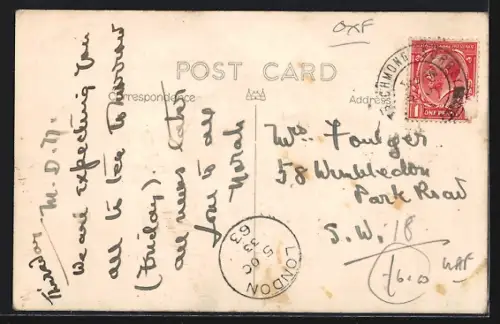 OXF
POST CARD
Correspondence
Address
RICHMOND
ONE PENNY
Thursday
M.D.N.
We are expecting you
all to tea to-morrow
(Friday).
all news later
Love to all
Norah
Mrs. Younger
58 Wimbledon
Park Road
S.W. 18
LONDON
63